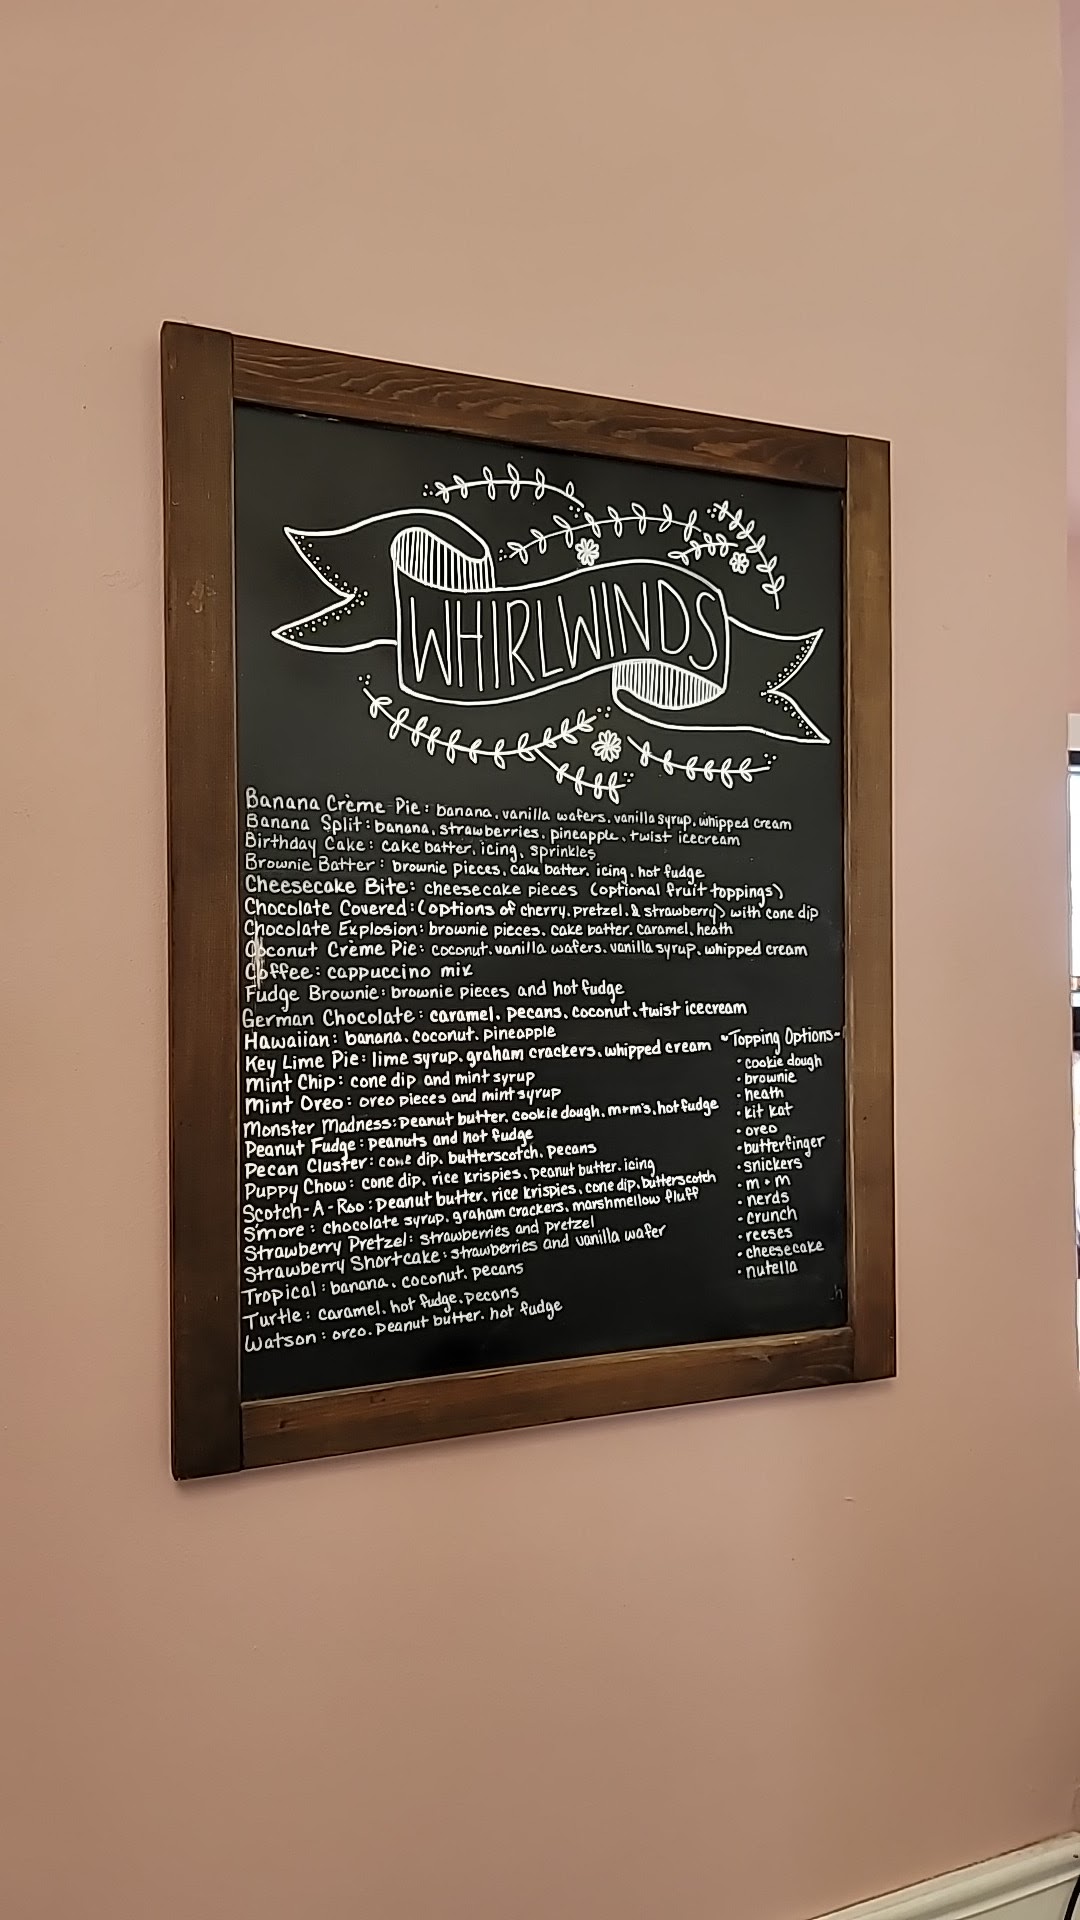 WHIRLWINDS
Banana Crème Pie: banana, vanilla wafers, vanilla syrup, whipped cream
Banana Split: banana, strawberries, pineapple, twist icecream
Birthday Cake: cake batter, icing, sprinkles
Brownie Batter: brownie pieces, cake batter, icing, hot fudge
Cheesecake Bite: cheesecake pieces (optional fruit toppings)
Chocolate Covered: (options of cherry, pretzel, & strawberry) with cone dip
Chocolate Explosion: brownie pieces, cake batter, caramel, heath
Coconut Crème Pie: coconut, vanilla wafers, vanilla syrup, whipped cream
Coffee: cappuccino mix
Fudge Brownie: brownie pieces and hot fudge
German Chocolate: caramel, pecans, coconut, twist icecream
Hawaiian: banana, coconut, pineapple
Key Lime Pie: lime syrup, graham crackers, whipped cream
Mint Chip: cone dip and mint syrup
Mint Oreo: oreo pieces and mint syrup
Monster Madness: peanut butter, cookie dough, m+m's, hot fudge
Peanut Fudge: peanuts and hot fudge
Pecan Cluster: cone dip, butterscotch, pecans
Puppy Chow: cone dip, rice krispies, peanut butter, icing
Scotch-A-Roo: peanut butter, rice krispies, cone dip, butterscotch
S'more: chocolate syrup, graham crackers, marshmellow fluff
Strawberry Pretzel: strawberries and pretzel
Strawberry Shortcake: strawberries and vanilla wafer
Tropical: banana, coconut, pecans
Turtle: caramel, hot fudge, pecans
Watson: oreo, peanut butter, hot fudge
~Topping Options~
• cookie dough
• brownie
• heath
• kit kat
• oreo
• butterfinger
• snickers
• m+m
• nerds
• crunch
• reeses
• cheesecake
• nutella